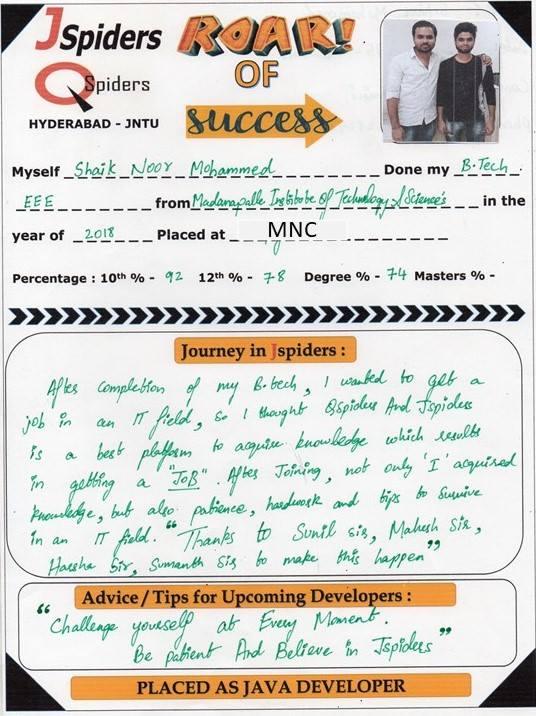 JSpiders ROAR!
QSpiders OF
HYDERABAD - JNTU success
Myself Shaik Noor Mohammed Done my B.Tech
EEE from Madanapalle Institute Of Technology & Science's in the
year of 2018 Placed at MNC
Percentage : 10th % - 92 12th % - 78 Degree % - 74 Masters % -
Journey in Jspiders :
After completion of my B.tech, I wanted to get a
job in an IT field, so I thought Qspiders And Jspiders
is a best platform to acquire knowledge which results
in getting a "JOB". After Joining, not only 'I' acquired
knowledge, but also patience, hardwork and tips to survive
in an IT field. "Thanks to Sunil sir, Mahesh Sir,
Harsha Sir, Sumanth Sir to make this happen"
Advice / Tips for Upcoming Developers :
"Challenge yourself at Every Moment.
Be patient And Believe in Jspiders"
PLACED AS JAVA DEVELOPER